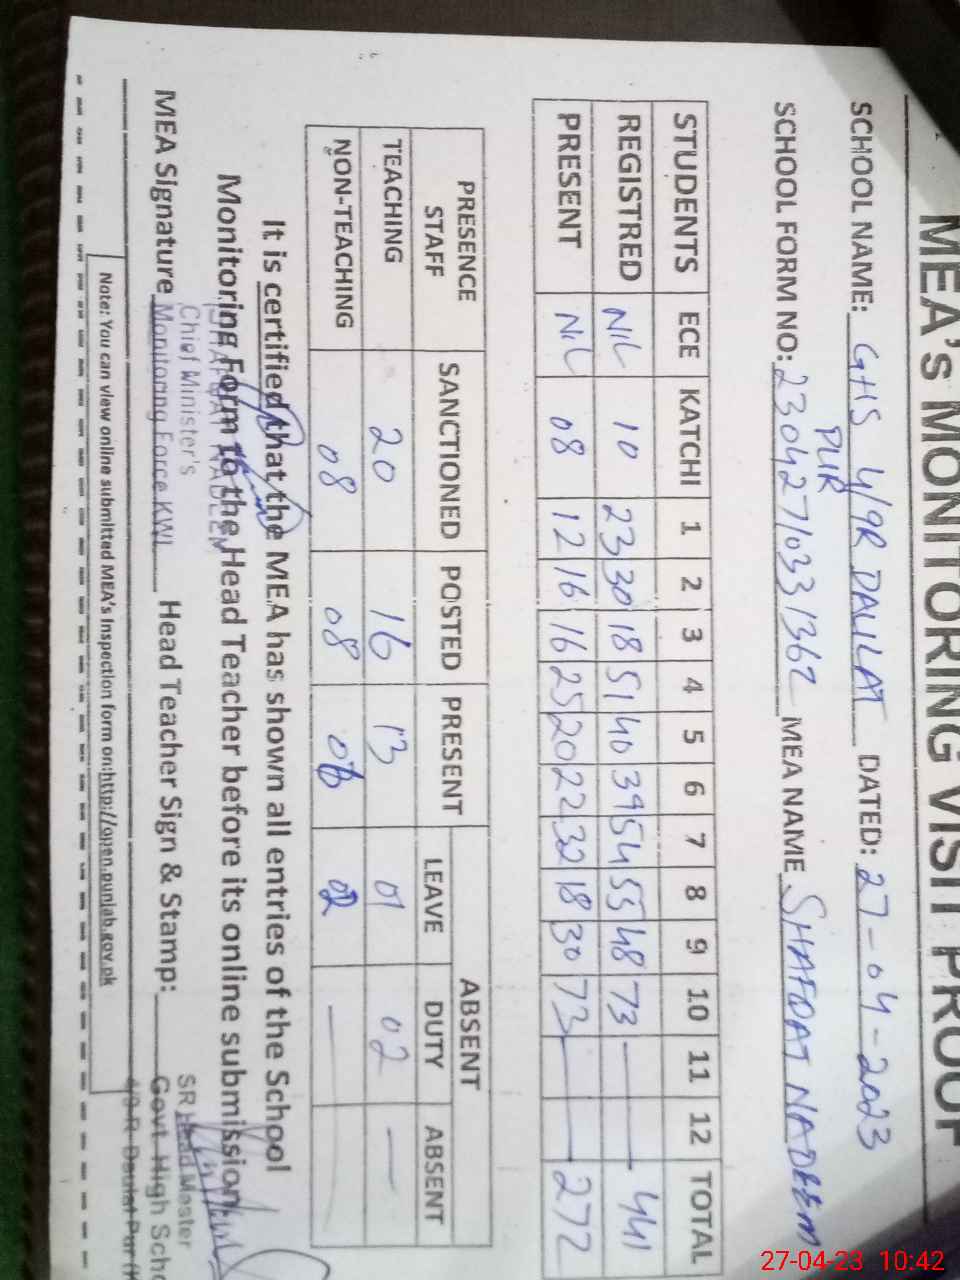 MEA's MONITORING VISIT PROOF
SCHOOL NAME: GHS 4/9R DAULAT DATED: 27-04-2023
PUR
SCHOOL FORM NO: 23042710331362 MEA NAME SHAFQAT NADEEM
STUDENTS ECE KATCHI 1 2 3 4 5 6 7 8 9 10 11 12 TOTAL
REGISTRED NIL 10 23 30 18 51 40 39 54 55 48 73 — — 441
PRESENT NIL 08 12 16 16 25 20 22 32 18 30 73 — — 272
PRESENCE SANCTIONED POSTED PRESENT ABSENT
STAFF LEAVE DUTY ABSENT
TEACHING 20 16 13 01 02 —
NON-TEACHING 08 08 06 02 —
It is certified that the MEA has shown all entries of the School
Monitoring Form to the Head Teacher before its online submission
SHAFQAT NADEEM
Chief Minister's
Monitoring Force KWL
MEA Signature Head Teacher Sign & Stamp:
SR Head Master
Govt. High Scho
4/9-R Daulat Pur (K
Note: You can view online submitted MEA's Inspection form on:http://open.punjab.gov.pk
27-04-23 10:42